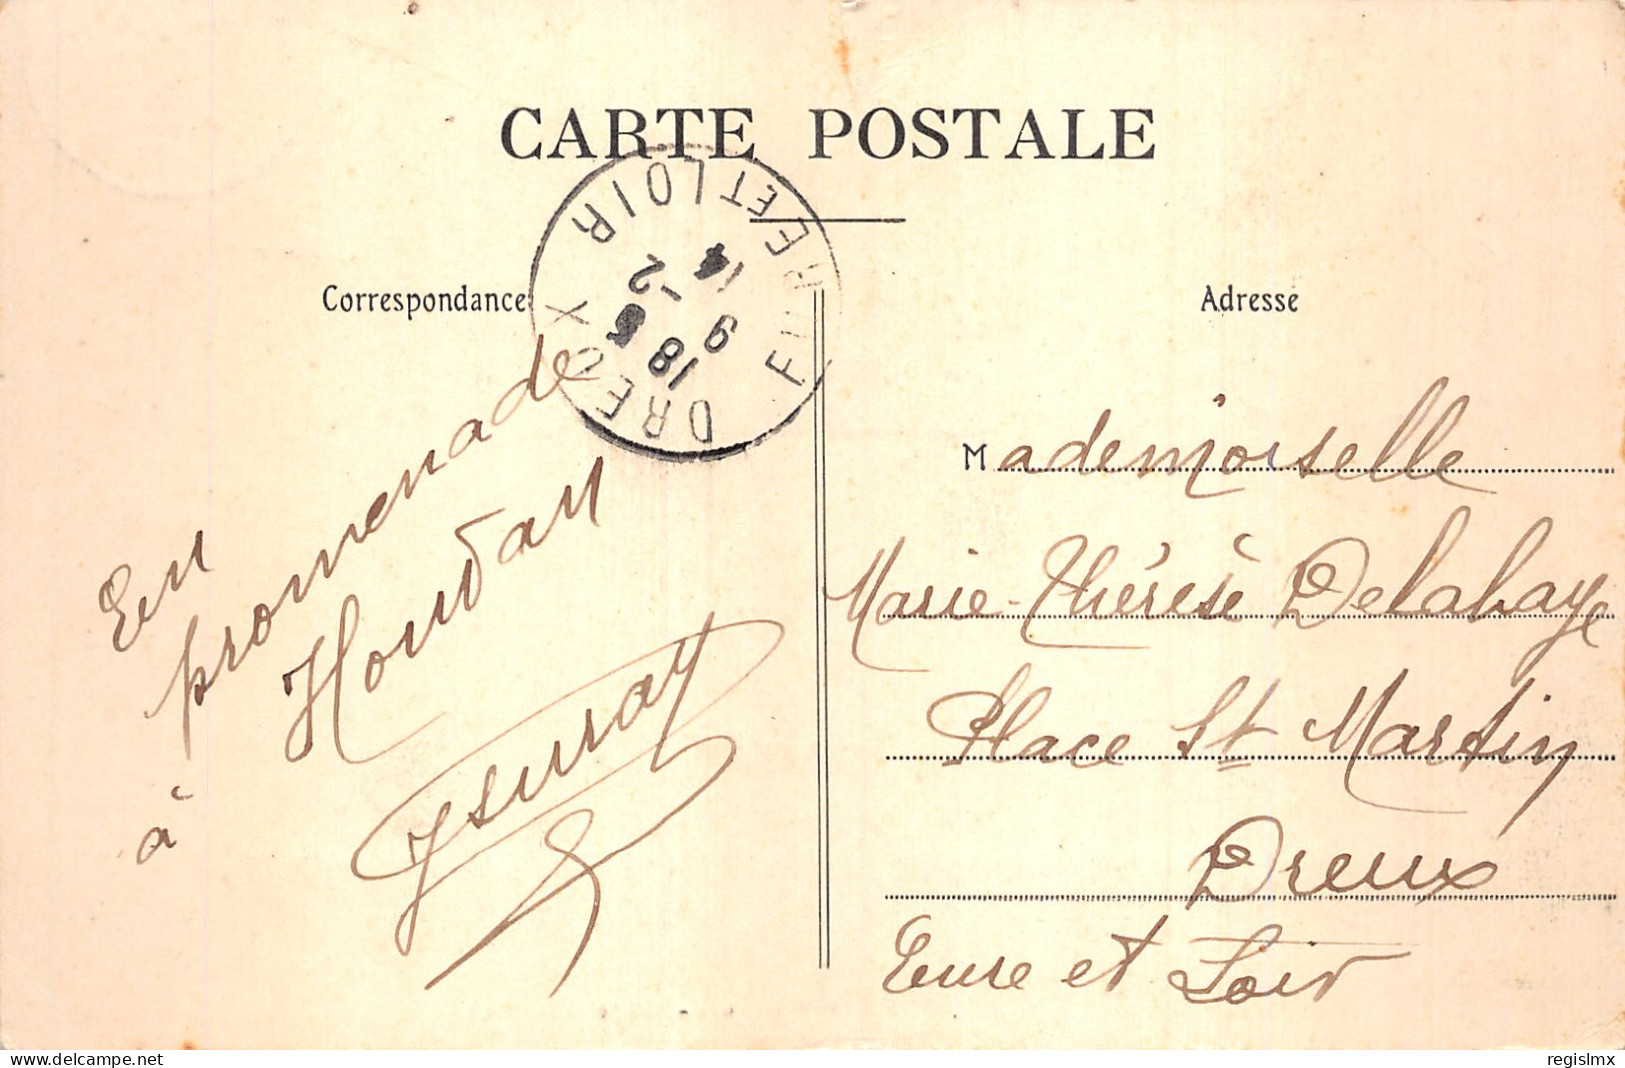 CARTE POSTALE
Correspondance
Adresse
DREUX
EURE ET LOIR
18
9
14
En
promenade
à Houdan
Mademoiselle
Marie-Thérèse Delahaye
Place St Martin
Dreux
Eure et Loir
www.delcampe.net
regislmx